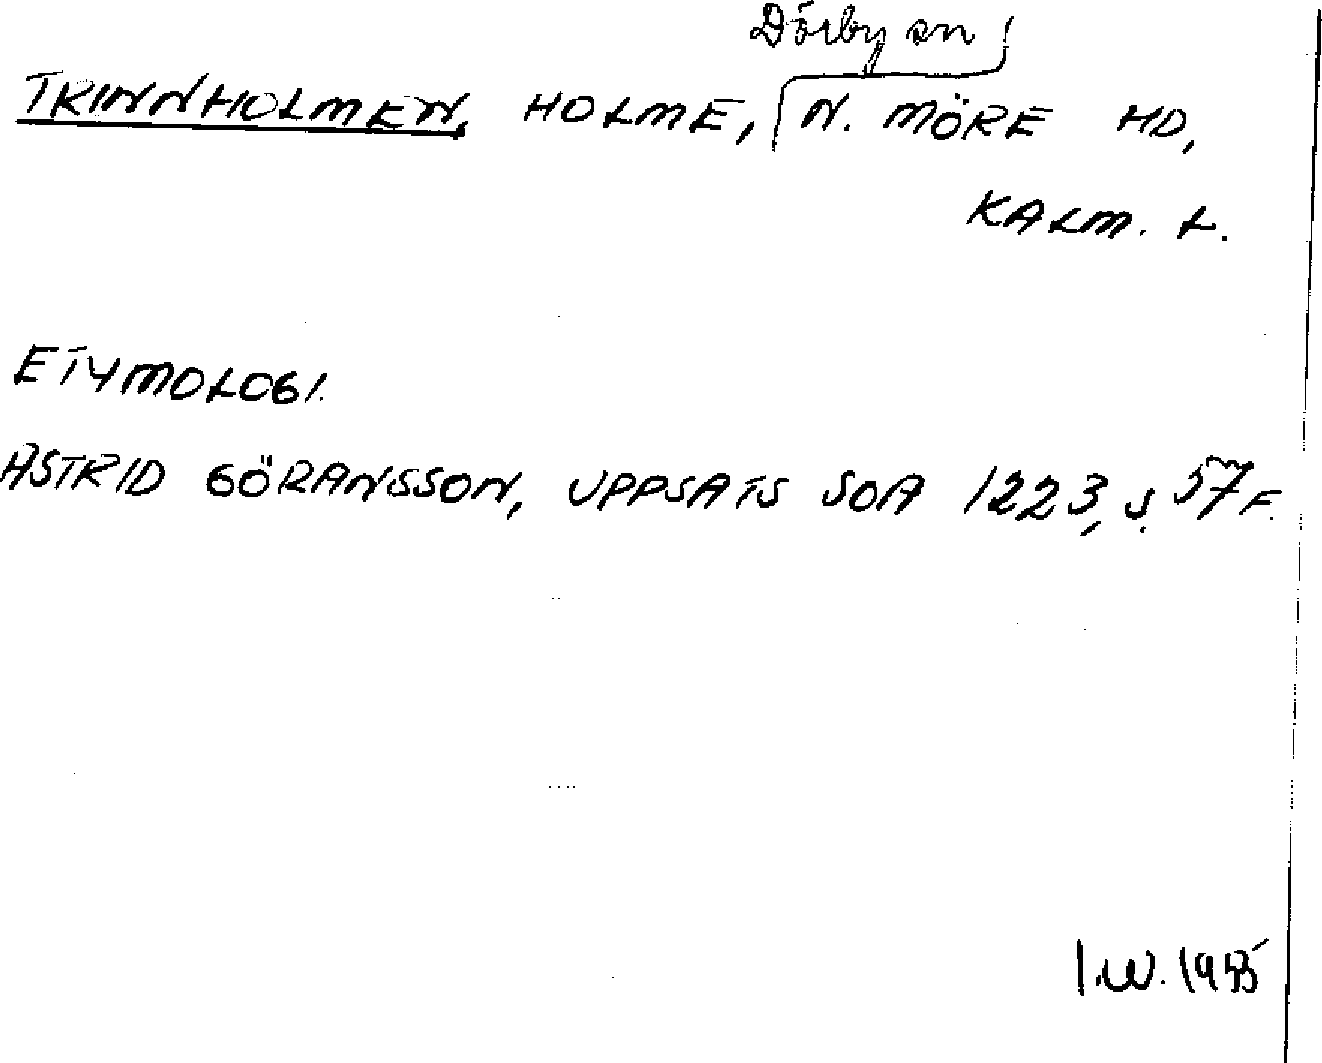 Dörby sn
TRINNHOLMEN, HOLME, N. MÖRE HD,
KALM. L.
ETYMOLOGI.
ASTRID GÖRANSSON, UPPSATS SOA 1223, S. 57 F.
I.W. 1955